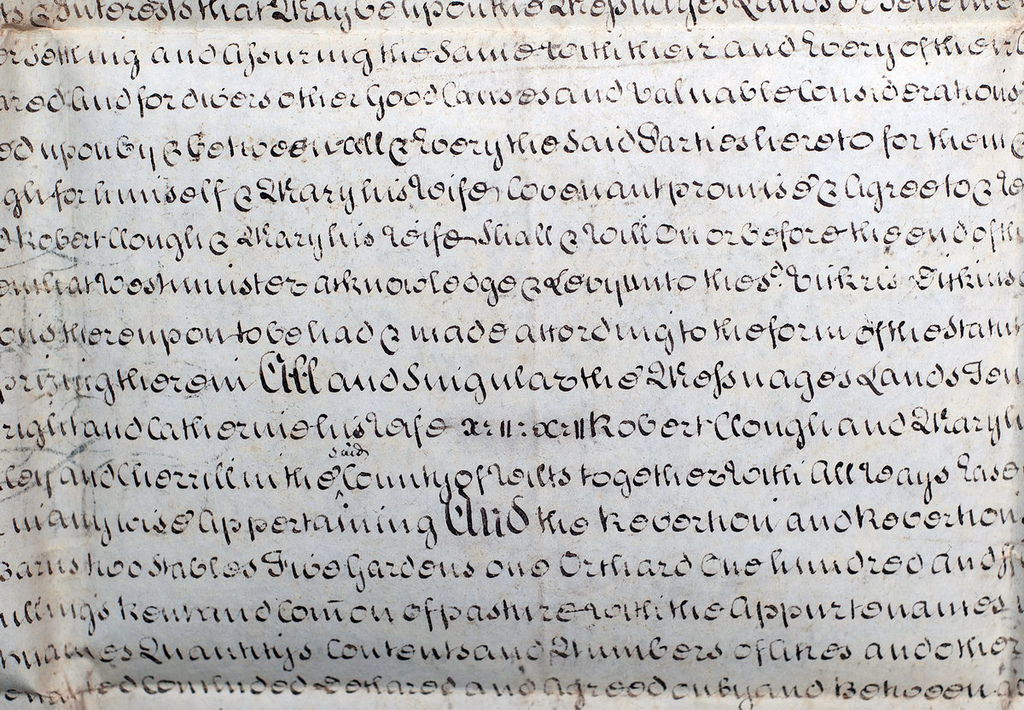 Interests that May be upon the Messuages Lands or Teneme
Setling and Assuring the Same with their and Every of their
ared And for divers other Good Causes and Valuable Considerations
ed upon by & between all & Every the Said Parties hereto for them &
gh for himself & Mary his Wife Covenant promise & Agree to &
d Robert Clough & Mary his Wife Shall & Will On or before the end of th
at Westminster acknowledge & Levy unto the sd.
ons thereupon to be had & made according to the form of the Statut
prizing therein All and Singular the Messuages Lands Ten
right and Catherine his Wife Robert Clough and Mary h
ley and Cherrill in the Said County of Wilts together with All Ways Wase
n any wise Appertaining And the Revertion and Revertion
Barns two Stables Five Gardens one Orchard One hundred And ff
ullings Rent and Com̄on of pasture with the Appurtenances
Quantitys Contents and Numbers of Acres and other
Concluded Declared and Agreed on by and Between